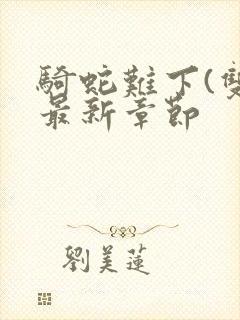 騎蛇難下(雙
最新章節
劉美蓮